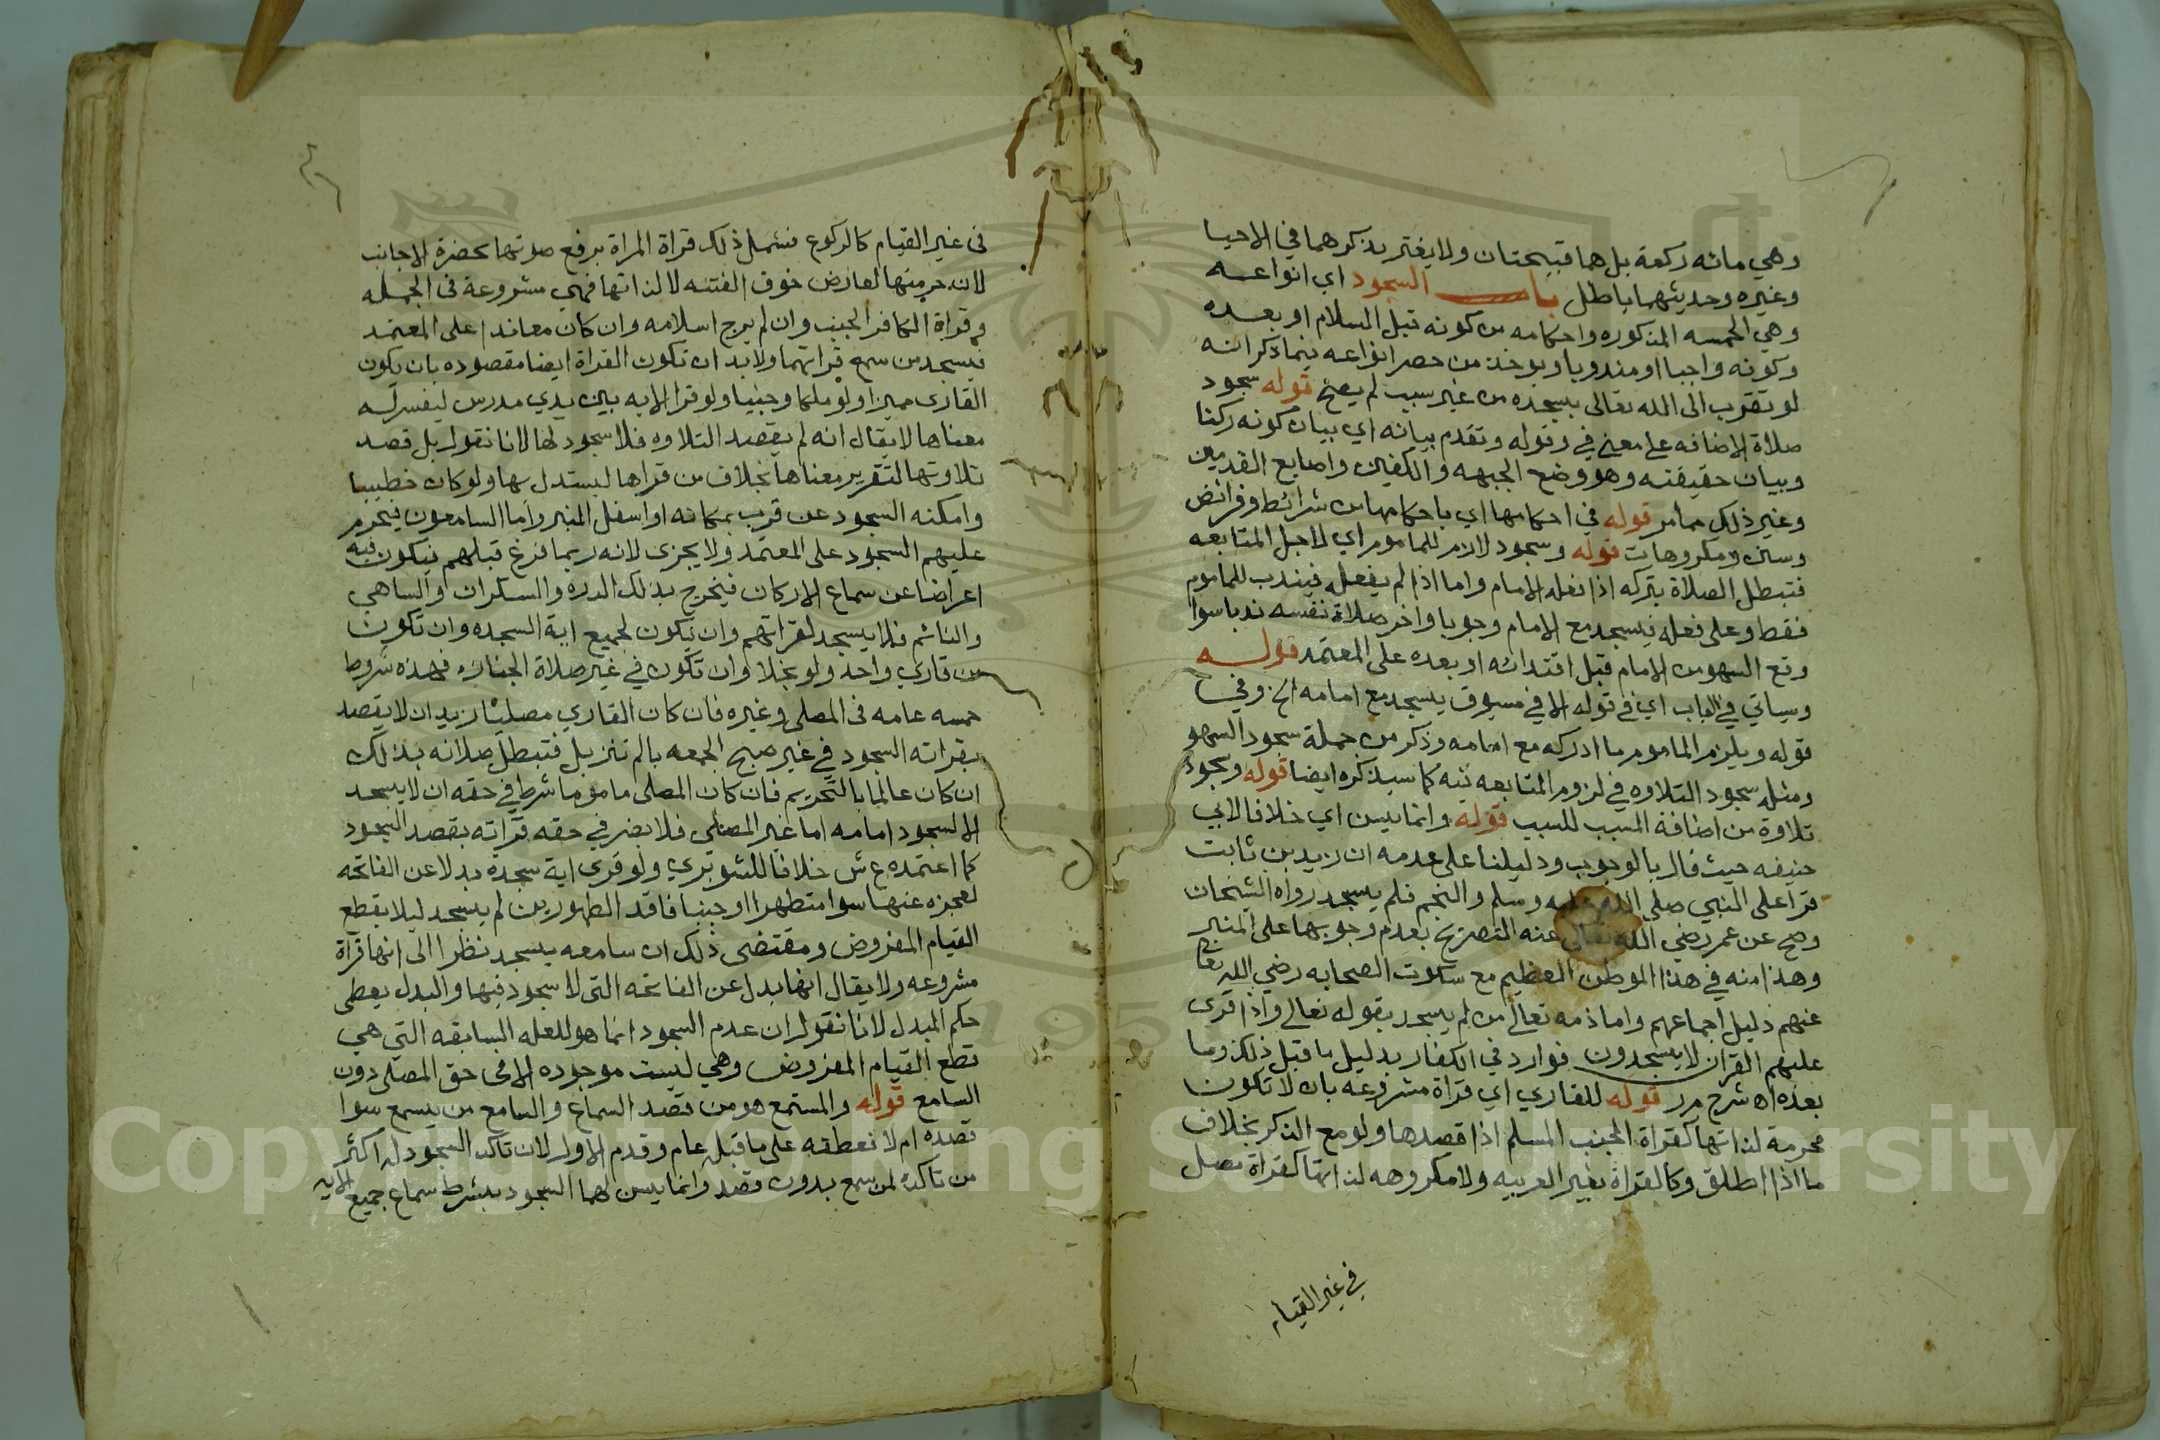 وهي مائه ركعة بل هما قبيحتان ولا يغتر بذكرهما في الاحيا
وغيره وحديثهما باطل باب السجود اي انواعه
وهي الخمسه المذكوره واحكامه من كونه قبل السلام او بعده
وكونه واجبا او مندوبا ويوخذ من حصر انواعه فيما ذكر انه
لو تقرب الى الله تعالى بسجده من غير سبب لم يصح قوله سجود
صلاة الاضافه على معنى في وقوله وتقدم بيانه اي بيان كونه ركنا
وبيان حقيقته وهو وضع الجبهه والكفين واصابع القدمين
وغير ذلك مما مر قوله في احكامها اي باحكامها من شرائط وفرائض
وسنن ومكروهات قوله وسجود لازم للماموم اي لاجل المتابعه
فتبطل الصلاة بتركه اذا فعله الامام واما اذا لم يفعله فيندب للماموم
فقط وعلى فعله فيسجد مع الامام وجوبا واخر صلاة نفسه ندبا سوا
وقع السهو من الامام قبل اقتدائه او بعده على المعتمد قوله
وسياتي في الباب اي في قوله الا في مسبوق يسجد مع امامه الخ وفي
قوله ويلزم الماموم ما ادركه مع امامه وذكر من جملة سجود السهو
ومثله سجود التلاوه في لزوم المتابعه فيه كما سيذكره ايضا قوله وسجود
تلاوة من اضافة المسبب للسبب قوله وانما يسن اي خلافا لابي
حنيفه حيث قال بالوجوب ودليلنا على عدمه ان زيد بن ثابت
قرا على النبي صلى الله عليه وسلم والنجم فلم يسجد رواه الشيخان
وصح عن عمر رضي الله تعالى عنه التصريح بعدم وجوبها على المنبر
وهذا منه في هذا الموطن العظيم مع سكوت الصحابه رضي الله تعا
عنهم دليل اجماعهم واما ذمه تعالى من لم يسجد بقوله تعالى واذا قرى
عليهم القران لا يسجدون فوارد في الكفار بدليل ما قبل ذلك وما
بعده اه شرح م ر قوله للقاري اي قراة مشروعه بان لا تكون
محرمة لذاتها كقراة الجنب المسلم اذا قصدها ولو مع الذكر بخلاف
ما اذا اطلق وكالقراة بغير العربيه ولا مكروهه لذاتها كقراة مصل
في غير القيام
في غير القيام كالركوع فشمل ذلك قراة المراة برفع صوتها بحضرة الاجانب
لان حرمتها لعارض خوف الفتنه لا لذاتها فهي مشروعة في الجمله
وقراة الكافر الجنب وان لم يرج اسلامه وان كان معاندا على المعتمد
فيسجد من سمع قراتهما ولا بد ان تكون القراة ايضا مقصوده بان يكون
القارى مميزا ولو ملكا وجنيا ولو قرا الايه بين يدي مدرس ليفسر له
معناها لا يقال انه لم يقصد التلاوه فلا سجود لها لانا نقول بل قصد
تلاوتها لتقرير معناها بخلاف من قراها ليستدل بها ولو كان خطيبا
وامكنه السجود عن قرب بمكانه او اسفل المنبر واما السامعون فيحرم
عليهم السجود على المعتمد ولا يجزى لانه ربما فرغ قبلهم فيكون فيه
اعراضا عن سماع الاركان فيخرج بذلك الدره والسكران والساهي
والنائم فلا يسجد لقراتهم وان يكون لجميع اية السجده وان تكون
من قاري واحد ولو بخلا وان تكون في غير صلاة الجنازه فهذه شروط
خمسه عامه في المصلى وغيره فان كان القاري مصليا زيد ان لا يقصد
بقراته السجود في غير صبح الجمعه بالم تنزيل فتبطل صلاته بذلك
ان كان عالما بالتحريم فان كان المصلى ماموما شرط في حقه ان لا يسجد
الا لسجود امامه اما غير المصلى فلا يضر في حقه قراته بقصد السجود
كما اعتمده ع ش خلافا للشوبري ولو قرى اية سجدة بدلا عن الفاتحه
لعجزه عنها سوا متطهرا او جنبا فاقد الطهورين لم يسجد ليلا يقطع
القيام المفروض ومقتضى ذلك ان سامعه يسجد نظرا الى انها قراة
مشروعه ولا يقال انها بدل عن الفاتحه التى لا سجود فيها والبدل يعطى
حكم المبدل لانا نقول ان عدم السجود انما هو للعله السابقه التي هي
قطع القيام المفروض وهي ليست موجوده الا في حق المصلى دون
السامع قوله والمستمع هو من قصد السماع والسامع من يسمع سوا
قصده ام لا فعطفه على ما قبله عام وقدم الاول لان تاكد السجود له اكثر
من تاكده لمن سمع بدون قصد وانما يسن لهما السجود بشرط سماع جميع الايه
Copyright © King Saud University